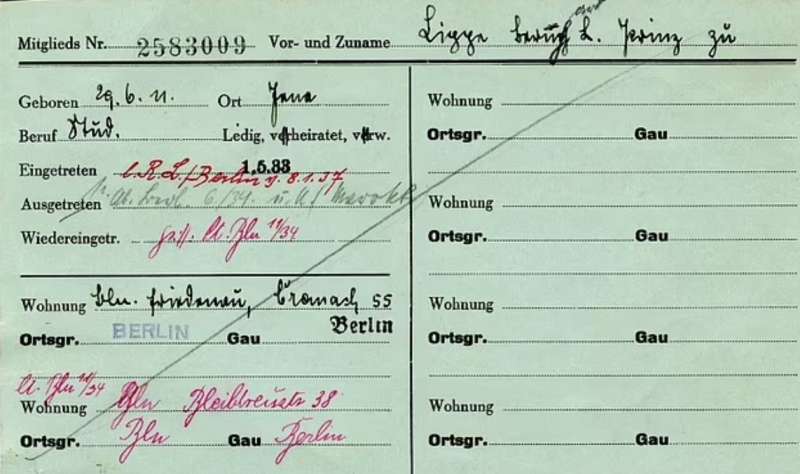 Mitglieds Nr. 2583009 Vor- und Zuname Lippe Prinz zu
Geboren 29.6.11. Ort Jena
Beruf Stud. Ledig, verheiratet, verw.
Eingetreten 1.5.33
l.R.L./Berlin v. 8.1.37
Ausgetreten 6/34 u.K/
Wiedereingetr. 11/34
Wohnung Bln. Friedenau, 55
Ortsgr. BERLIN Gau Berlin
11/34
Wohnung Bln Bleibtreustr 38
Ortsgr. Bln Gau Berlin
Wohnung
Ortsgr. Gau
Wohnung
Ortsgr. Gau
Wohnung
Ortsgr. Gau
Wohnung
Ortsgr. Gau